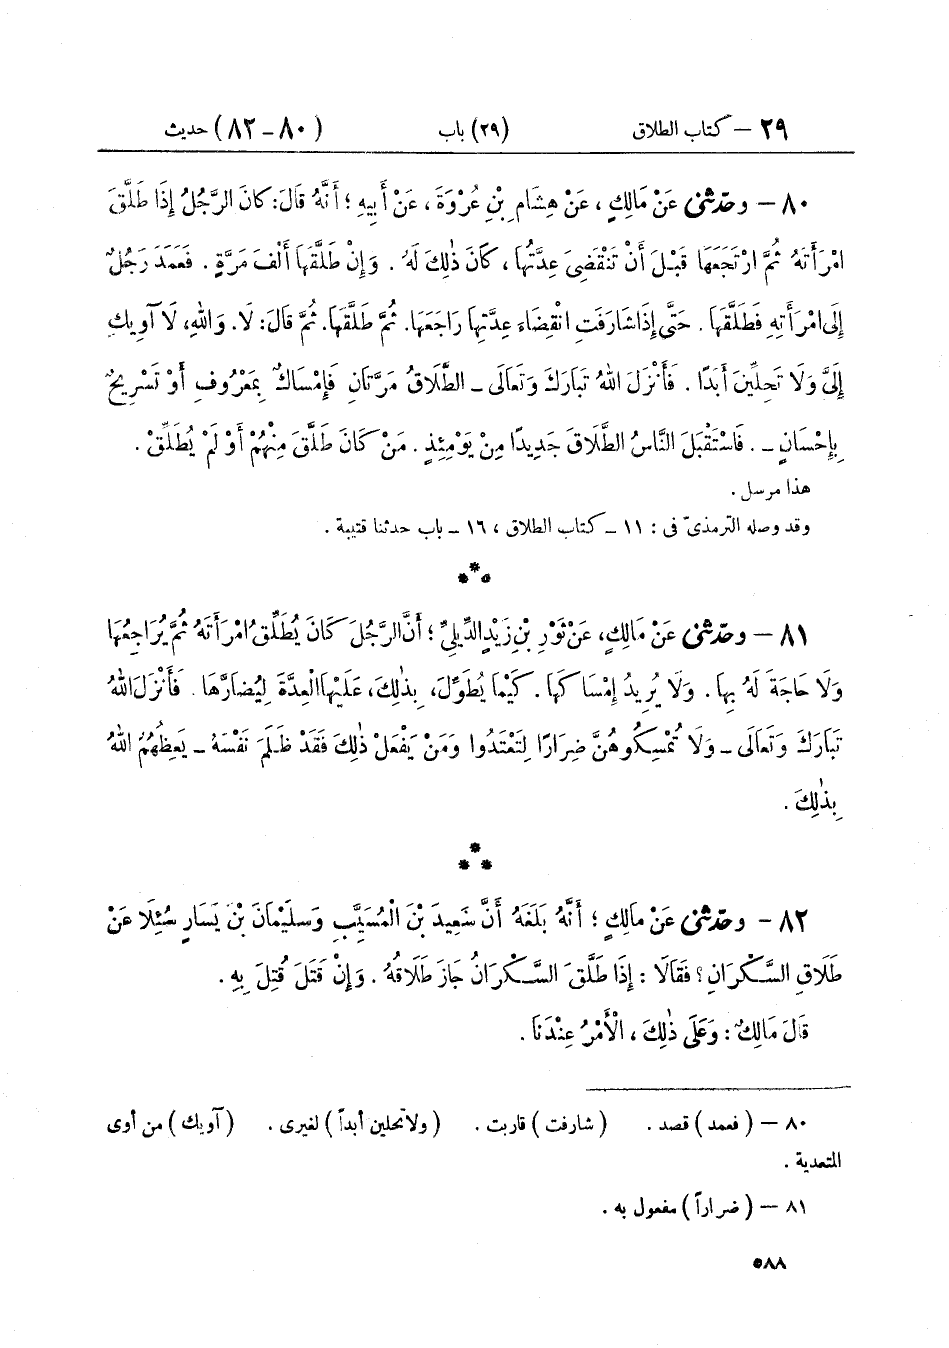 ٢٩ — كتاب الطلاق (٢٩) باب (٨٠ — ٨٢) حديث
٨٠ — وحدّثنى عَنْ مَالِكٍ ، عَنْ هِشَامِ بْنِ عُرْوَةَ ، عَنْ أَبِيهِ ؛ أَنَّهُ قَالَ : كَانَ الرَّجُلُ إِذَا طَلَّقَ
امْرَأَتَهُ ثُمَّ ارْتَجَعَهَا قَبْلَ أَنْ تَنْقَضِىَ عِدَّتُهَا ، كَانَ ذٰلِكَ لَهُ . وَإِنْ طَلَّقَهَا أَلْفَ مَرَّةٍ . فَعَمَدَ رَجُلٌ
إِلَى امْرَأَتِهِ فَطَلَّقَهَا . حَتَّى إِذَا شَارَفَتِ انْقِضَاءَ عِدَّتِهَا رَاجَعَهَا. ثُمَّ طَلَّقَهَا. ثُمَّ قَالَ : لَا. وَاللهِ، لَا آوِيكِ
إِلَىَّ وَلَا تَحِلِّينَ أَبَدًا . فَأَنْزَلَ اللهُ تَبَارَكَ وَتَعَالَى ــ الطَّلَاقُ مَرَّتَانِ فَإِمْسَاكٌ بِمَعْرُوفٍ أَوْ تَسْرِيحٌ
بِإِحْسَانٍ ــ . فَاسْتَقْبَلَ النَّاسُ الطَّلَاقَ جَدِيدًا مِنْ يَوْمِئِذٍ . مَنْ كَانَ طَلَّقَ مِنْهُمْ أَوْ لَمْ يُطَلِّقْ .
هذا مرسل .
وقد وصله الترمذىّ فى : ١١ ــ كتاب الطلاق ، ١٦ ــ باب حدثنا قتيبة .
٨١ — وحدّثنى عَنْ مَالِكٍ، عَنْ ثَوْرِ بْنِ زَيْدٍ الدِّيلِىِّ ؛ أَنَّ الرَّجُلَ كَانَ يُطَلِّقُ امْرَأَتَهُ ثُمَّ يُرَاجِعُهَا
وَلَا حَاجَةَ لَهُ بِهَا. وَلَا يُرِيدُ إِمْسَاكَهَا. كَيْمَا يُطَوِّلُ، بِذٰلِكَ، عَلَيْهَا الْعِدَّةَ لِيُضَارَّهَا . فَأَنْزَلَ اللهُ
تَبَارَكَ وَتَعَالَى ــ وَلَا تُمْسِكُوهُنَّ ضِرَارًا لِتَعْتَدُوا وَمَنْ يَفْعَلْ ذٰلِكَ فَقَدْ ظَلَمَ نَفْسَهُ ــ يَعِظُهُمُ اللهُ
بِذٰلِكَ .
٨٢ — وحدّثنى عَنْ مَالِكٍ ؛ أَنَّهُ بَلَغَهُ أَنَّ سَعِيدَ بْنَ الْمُسَيَّبِ وَسُلَيْمَانَ بْنَ يَسَارٍ سُئِلَا عَنْ
طَلَاقِ السَّكْرَانِ ؟ فَقَالَا : إِذَا طَلَّقَ السَّكْرَانُ جَازَ طَلَاقُهُ . وَإِنْ قَتَلَ قُتِلَ بِهِ .
قَالَ مَالِكٌ : وَعَلَى ذٰلِكَ ، الْأَمْرُ عِنْدَنَا .
٨٠ — (فعمد) قصد . (شارفت) قاربت . (ولا تحلين أبداً) لغيرى . (آويك) من أوى
المتعدية .
٨١ — (ضراراً) مفعول به .
٥٨٨